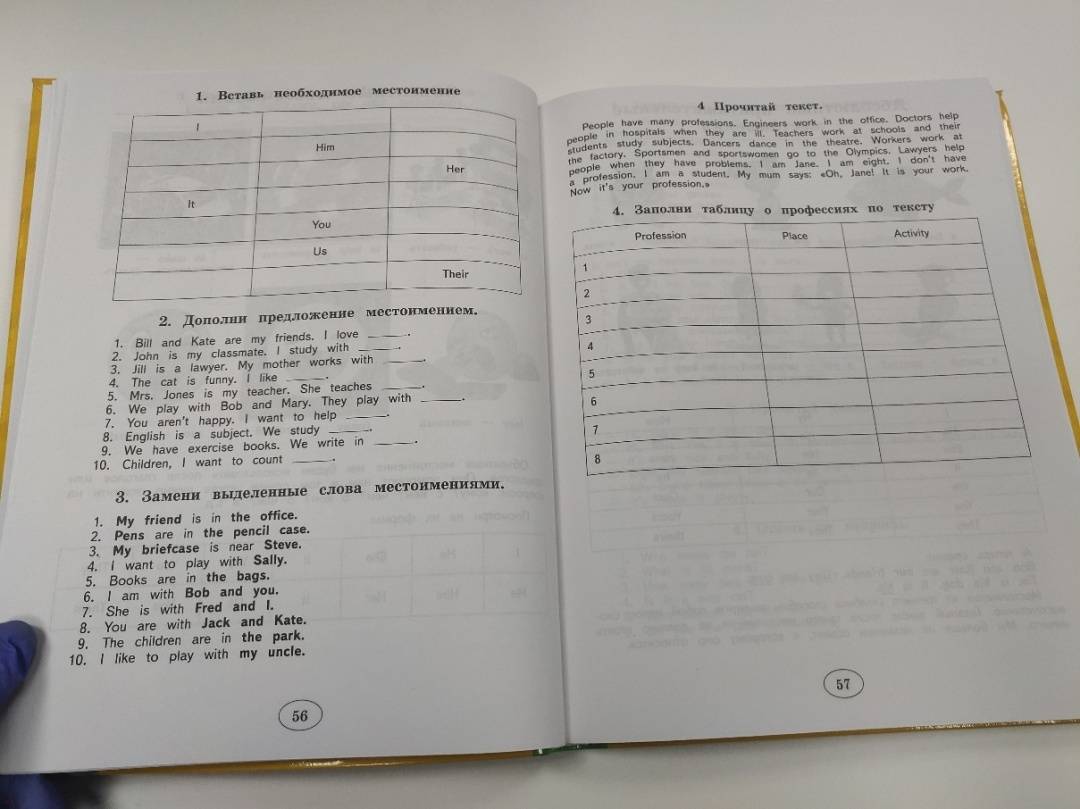 1. Вставь необходимое местоимение
I
Him
Her
It
You
Us
Their
2. Дополни предложение местоимением.
1. Bill and Kate are my friends. I love ______.
2. John is my classmate. I study with ______.
3. Jill is a lawyer. My mother works with ______.
4. The cat is funny. I like ______.
5. Mrs. Jones is my teacher. She teaches ______.
6. We play with Bob and Mary. They play with ______.
7. You aren't happy. I want to help ______.
8. English is a subject. We study ______.
9. We have exercise books. We write in ______.
10. Children, I want to count ______.
3. Замени выделенные слова местоимениями.
1. My friend is in the office.
2. Pens are in the pencil case.
3. My briefcase is near Steve.
4. I want to play with Sally.
5. Books are in the bags.
6. I am with Bob and you.
7. She is with Fred and I.
8. You are with Jack and Kate.
9. The children are in the park.
10. I like to play with my uncle.
56
4 Прочитай текст.
People have many professions. Engineers work in the office. Doctors help
people in hospitals when they are ill. Teachers work at schools and their
students study subjects. Dancers dance in the theatre. Workers work at
the factory. Sportsmen and sportswomen go to the Olympics. Lawyers help
people when they have problems. I am Jane. I am eight. I don't have
a profession. I am a student. My mum says: «Oh, Jane! It is your work.
Now it's your profession.»
4. Заполни таблицу о профессиях по тексту
Profession Place Activity
1
2
3
4
5
6
7
8
57